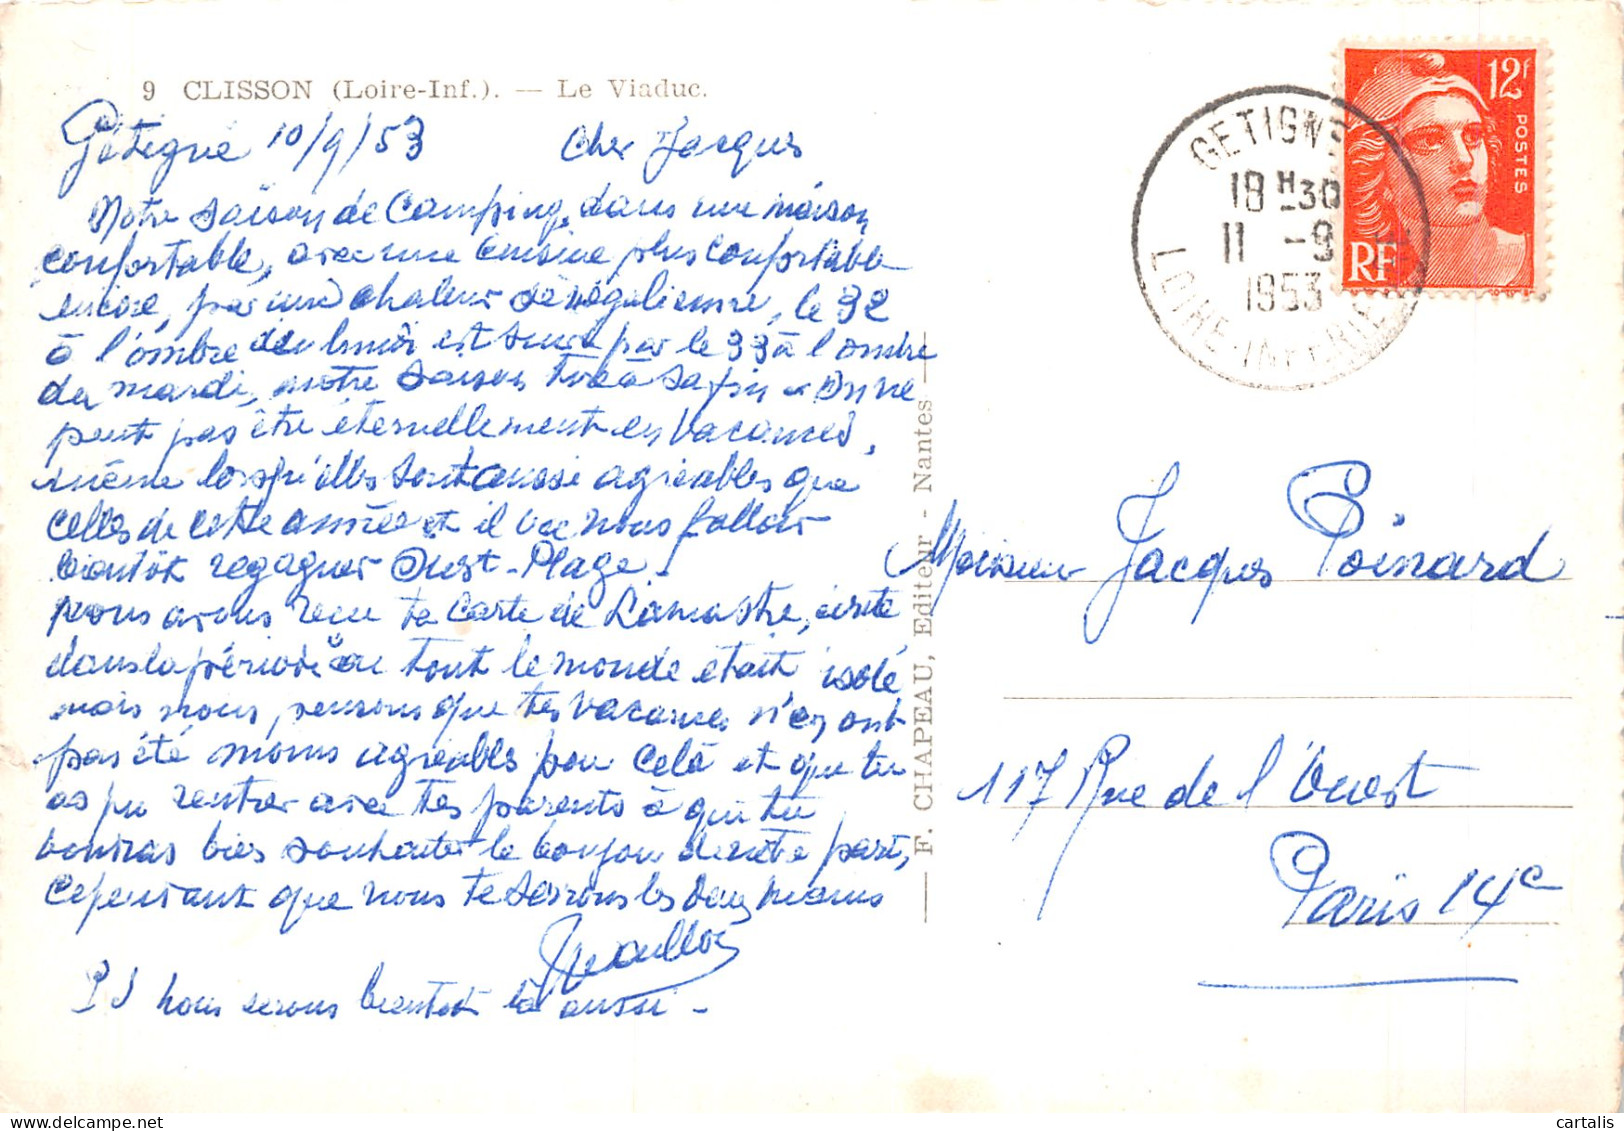 9 CLISSON (Loire-Inf.). — Le Viaduc.
Gétigné 10/9/53 Cher Jacques
Notre saison de Camping, dans une maison
confortable, avec une cuisine plus confortable
encore, par une chaleur sénégalienne, le 32
à l'ombre du lundi est suivi par le 33 à l'ombre
du mardi, notre saison tire à sa fin. On ne
peut pas être éternellement en vacances,
même lorsqu'elles sont aussi agréables que
celles de cette année et il va nous falloir
bientôt regagner Ouest-Plage.
Nous avons reçu ta carte de Lamastre, écrite
dans la période où tout le monde était isolé
mais nous pensons que tes vacances n'en ont
pas été moins agréables pour celà et que tu
as pu rentrer avec tes parents à qui tu
voudras bien souhaiter le bonjour de notre part,
cependant que nous te serrons les deux mains
PS nous serons bientôt là aussi -
F. CHAPEAU, Editeur - Nantes
12f
POSTES
RF
GETIGNE
18 H 30
11 -9
1953
LOIRE-INFERIEURE
Monsieur Jacques Poinard
117 Rue de l'Ouest
Paris 14e
cartalis
www.delcampe.net